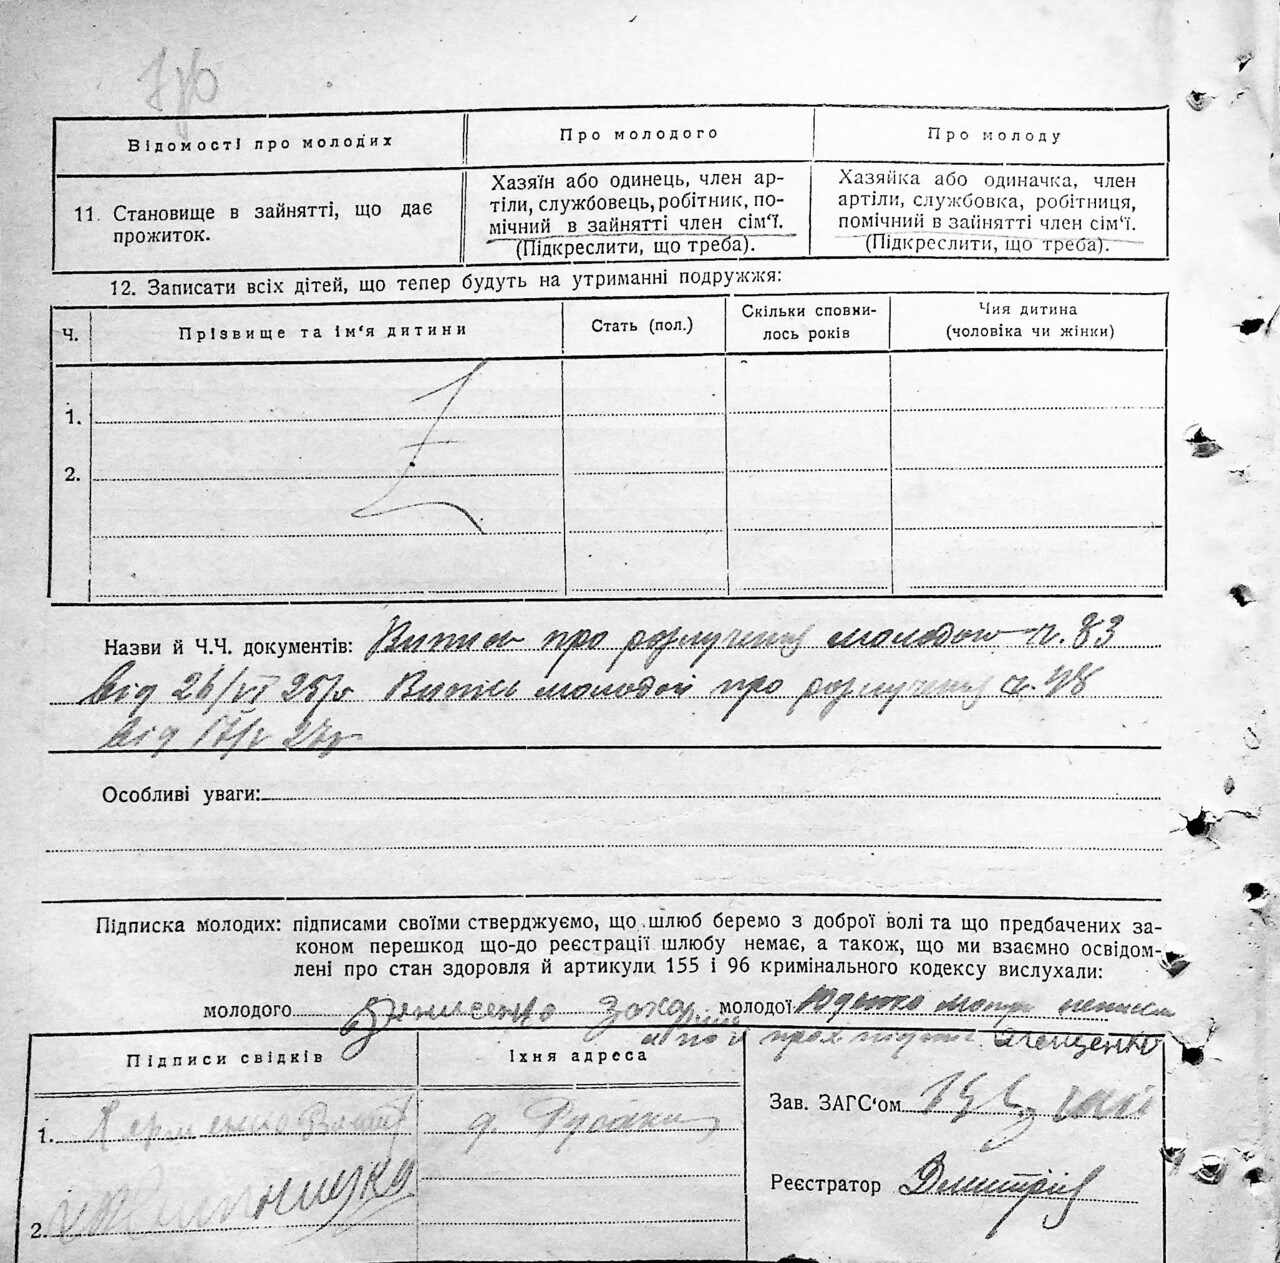 Відомості про молодих
Про молодого
Про молоду
11. Становище в зайнятті, що дає
прожиток.
Хазяїн або одинець, член ар-
тіли, службовець, робітник, по-
мічний в зайнятті член сім‘ї.
(Підкреслити, що треба).
Хазяйка або одиначка, член
артіли, службовка, робітниця,
помічний в зайнятті член сім‘ї.
(Підкреслити, що треба).
12. Записати всіх дітей, що тепер будуть на утриманні подружжя:
Ч.
Прізвище та ім‘я дитини
Стать (пол.)
Скільки сповни-
лось років
Чия дитина
(чоловіка чи жінки)
1.
2.
Назви й Ч.Ч. документів: Випис про розлучення молодого ч. 83
від 26/VI 25р Випис молодої про розлучення ч. 98
від 17/V 27р
Особливі уваги:
Підписка молодих: підписами своїми стверджуємо, що шлюб беремо з доброї волі та що предбачених за-
коном перешкод що-до реєстрації шлюбу немає, а також, що ми взаємно освідом-
лені про стан здоровля й артикули 155 і 96 кримінального кодексу вислухали:
молодого Денисенко Захар молодої Юденко
Підписи свідків
Їхня адреса
1.
2.
Зав. ЗАГС‘ом
Реєстратор Дмитрів